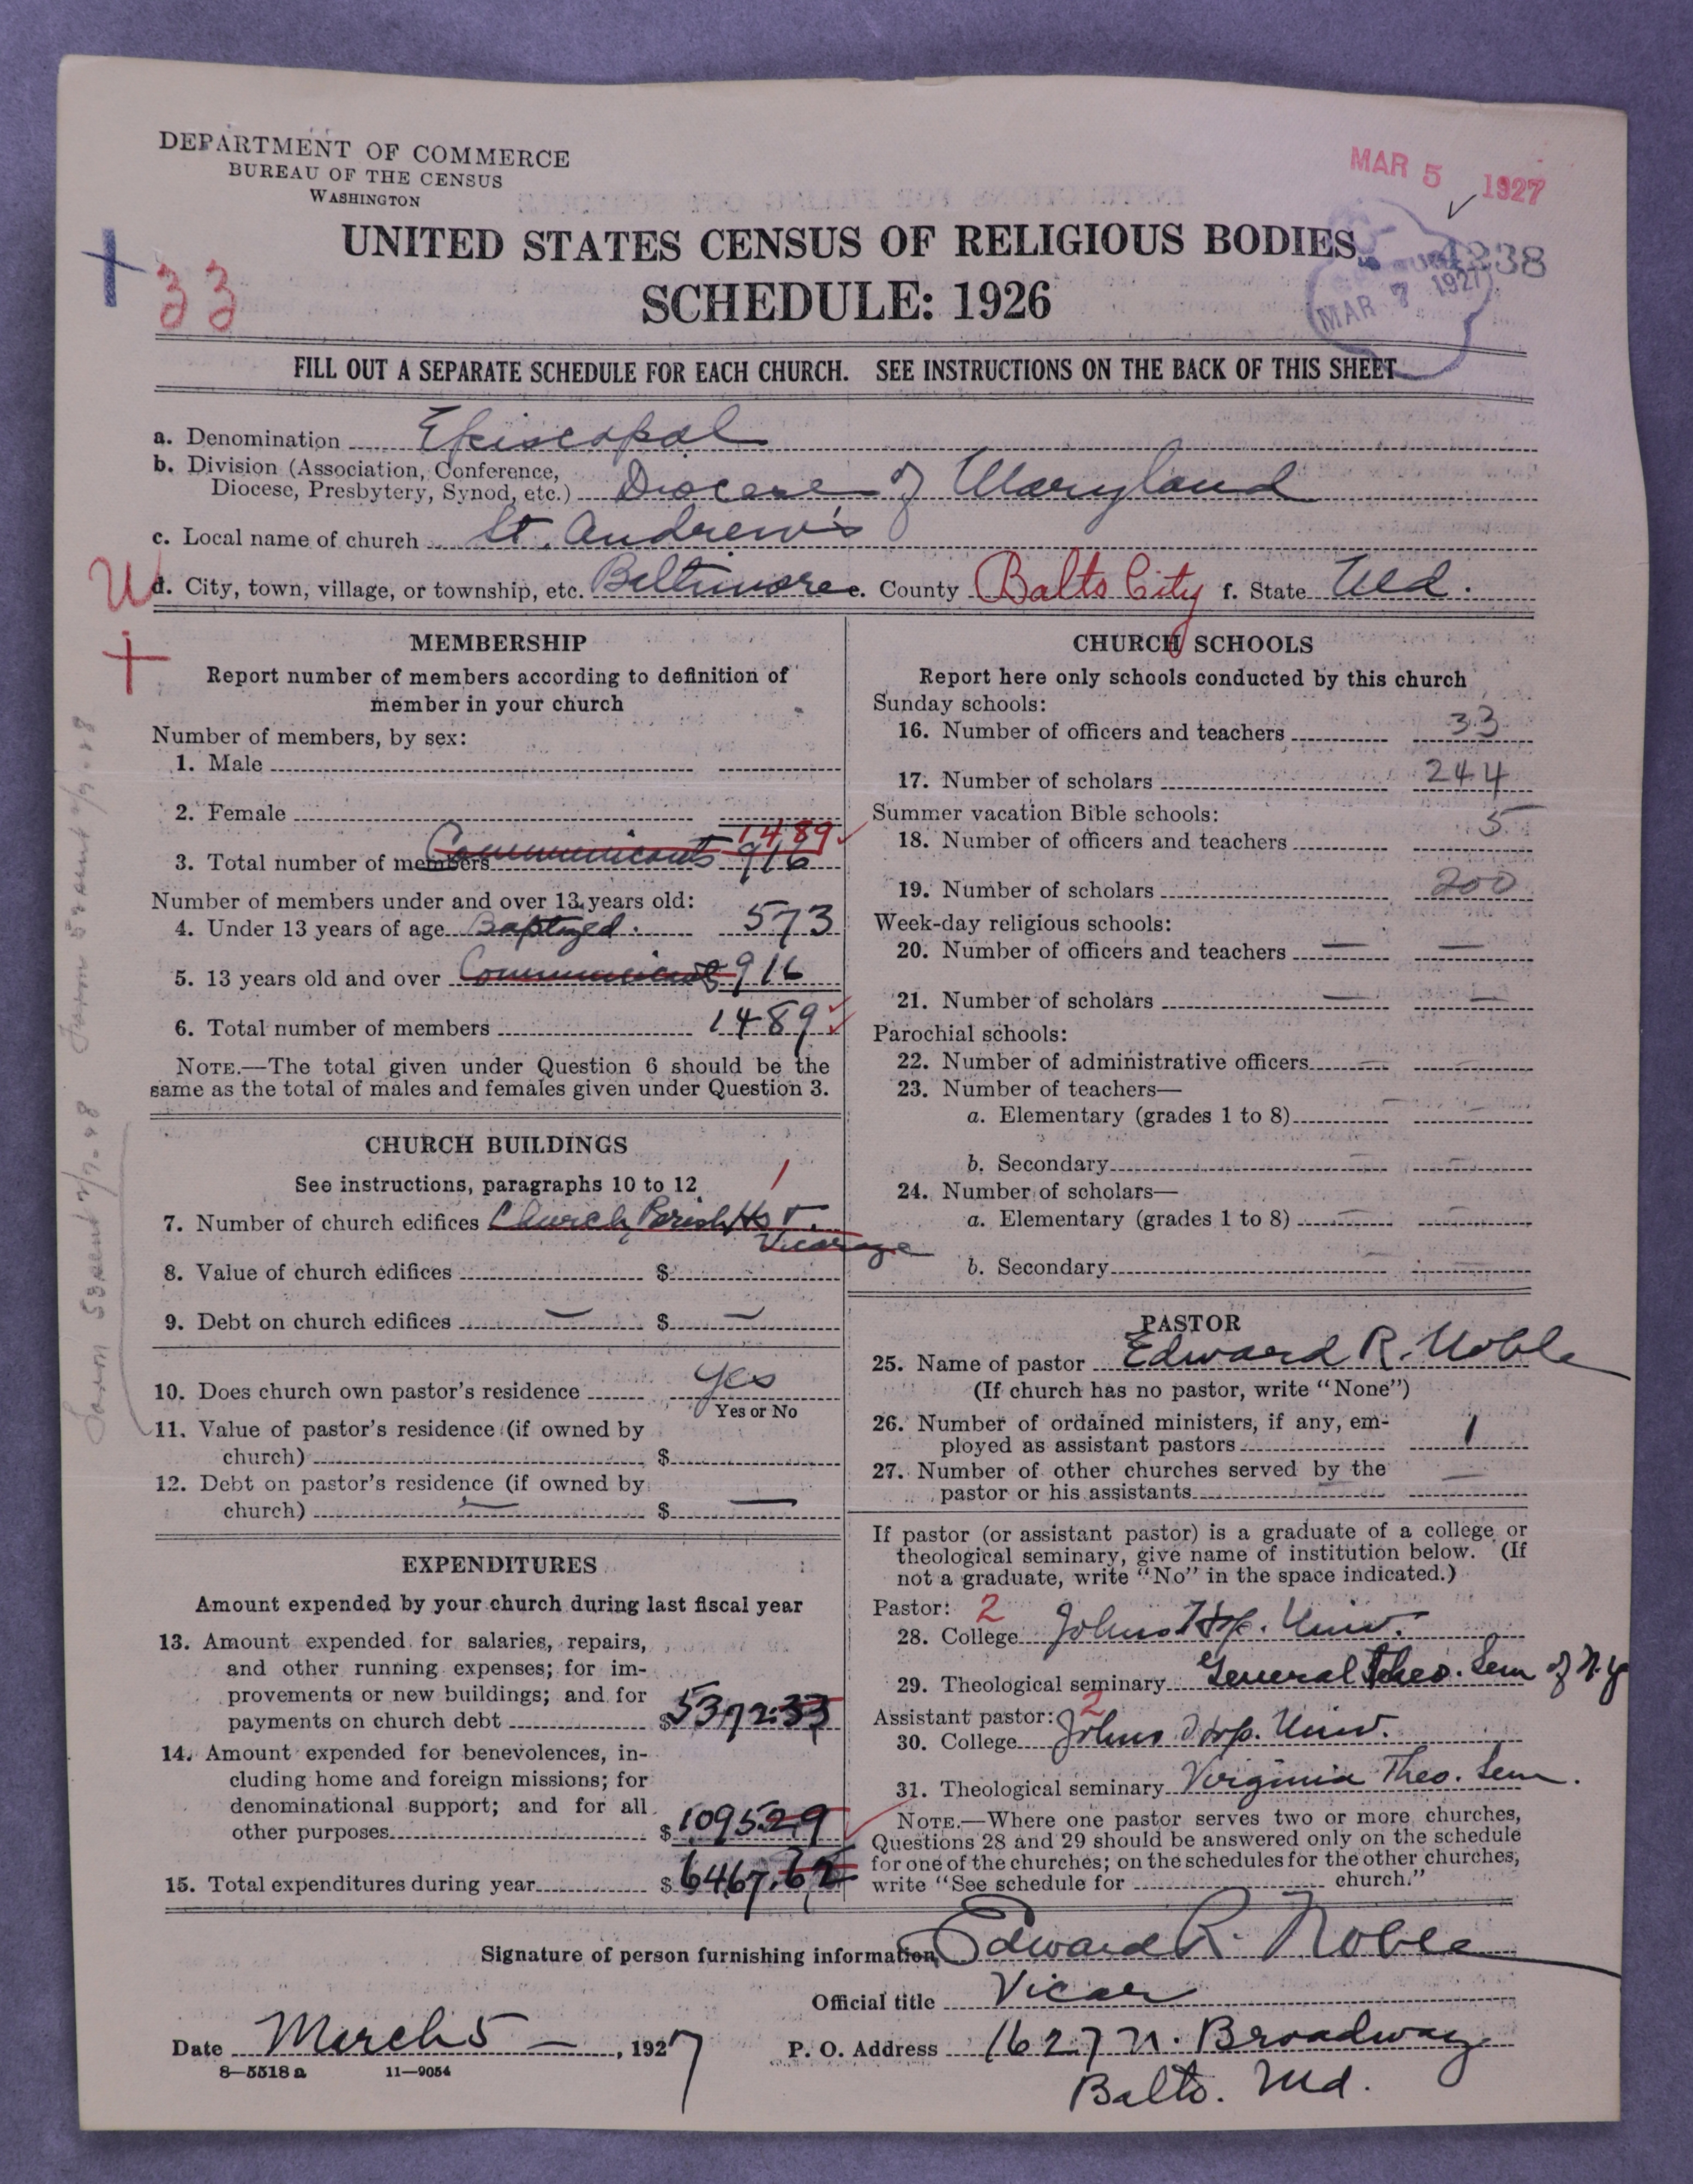 DEPARTMENT OF COMMERCE
BUREAU OF THE CENSUS
WASHINGTON
MAR 5 1927
UNITED STATES CENSUS OF RELIGIOUS BODIES
SCHEDULE: 1926
33
1238
MAR 7 1927
FILL OUT A SEPARATE SCHEDULE FOR EACH CHURCH. SEE INSTRUCTIONS ON THE BACK OF THIS SHEET
a. Denomination Episcopal
b. Division (Association, Conference,
Diocese, Presbytery, Synod, etc.) Diocese of Maryland
c. Local name of church St. Andrew's
d. City, town, village, or township, etc. Baltimore e. County Balto City f. State Md.
MEMBERSHIP
Report number of members according to definition of
member in your church
Number of members, by sex:
1. Male
2. Female
1489
3. Total number of members Communicants 916
Number of members under and over 13 years old:
4. Under 13 years of age Baptized. 573
5. 13 years old and over Communicants 916
6. Total number of members 1489
NOTE.—The total given under Question 6 should be the
same as the total of males and females given under Question 3.
CHURCH BUILDINGS
See instructions, paragraphs 10 to 12
1
7. Number of church edifices Church, Parish Hs &.
Vicarage
8. Value of church edifices $
9. Debt on church edifices — $ —
10. Does church own pastor's residence yes
Yes or No
11. Value of pastor's residence (if owned by
church) $
12. Debt on pastor's residence (if owned by
church) — $ —
EXPENDITURES
Amount expended by your church during last fiscal year
13. Amount expended for salaries, repairs,
and other running expenses; for im-
provements or new buildings; and for
payments on church debt $5372.33
14. Amount expended for benevolences, in-
cluding home and foreign missions; for
denominational support; and for all
other purposes $1095.29
15. Total expenditures during year $6467.62
CHURCH SCHOOLS
Report here only schools conducted by this church
Sunday schools:
16. Number of officers and teachers 33
17. Number of scholars 244
Summer vacation Bible schools:
18. Number of officers and teachers 5
19. Number of scholars 200
Week-day religious schools:
20. Number of officers and teachers — —
21. Number of scholars — —
Parochial schools:
22. Number of administrative officers — —
23. Number of teachers—
a. Elementary (grades 1 to 8) — —
b. Secondary — —
24. Number of scholars—
a. Elementary (grades 1 to 8) — —
b. Secondary — —
PASTOR
25. Name of pastor Edward R. Noble
(If church has no pastor, write "None")
26. Number of ordained ministers, if any, em-
ployed as assistant pastors 1
27. Number of other churches served by the
pastor or his assistants — —
If pastor (or assistant pastor) is a graduate of a college or
theological seminary, give name of institution below. (If
not a graduate, write "No" in the space indicated.)
Pastor: 2
28. College Johns Hop. Univ.
29. Theological seminary General Theo. Sem of N.Y
Assistant pastor: 2
30. College Johns Hop. Univ.
31. Theological seminary Virginia Theo. Sem.
NOTE.—Where one pastor serves two or more churches,
Questions 28 and 29 should be answered only on the schedule
for one of the churches; on the schedules for the other churches,
write "See schedule for church."
Signature of person furnishing information Edward R. Noble
Official title Vicar
Date March 5 —, 1927
P. O. Address 1627 N. Broadway
Balto. Md.
8—5518 a 11—9054